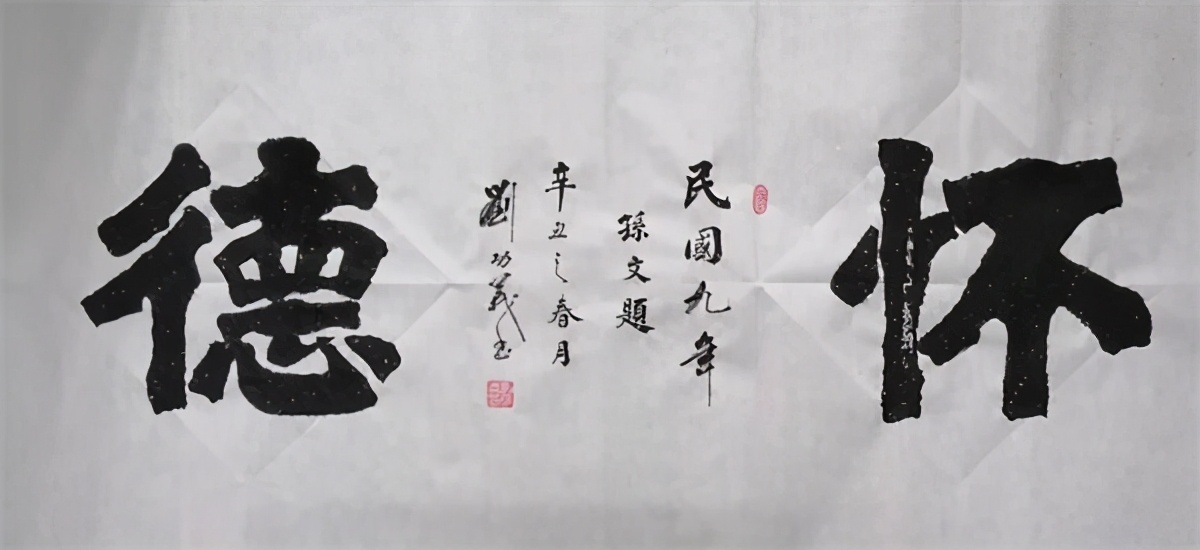 怀德
民國九年
孫文題
辛丑之春月
劉功義书